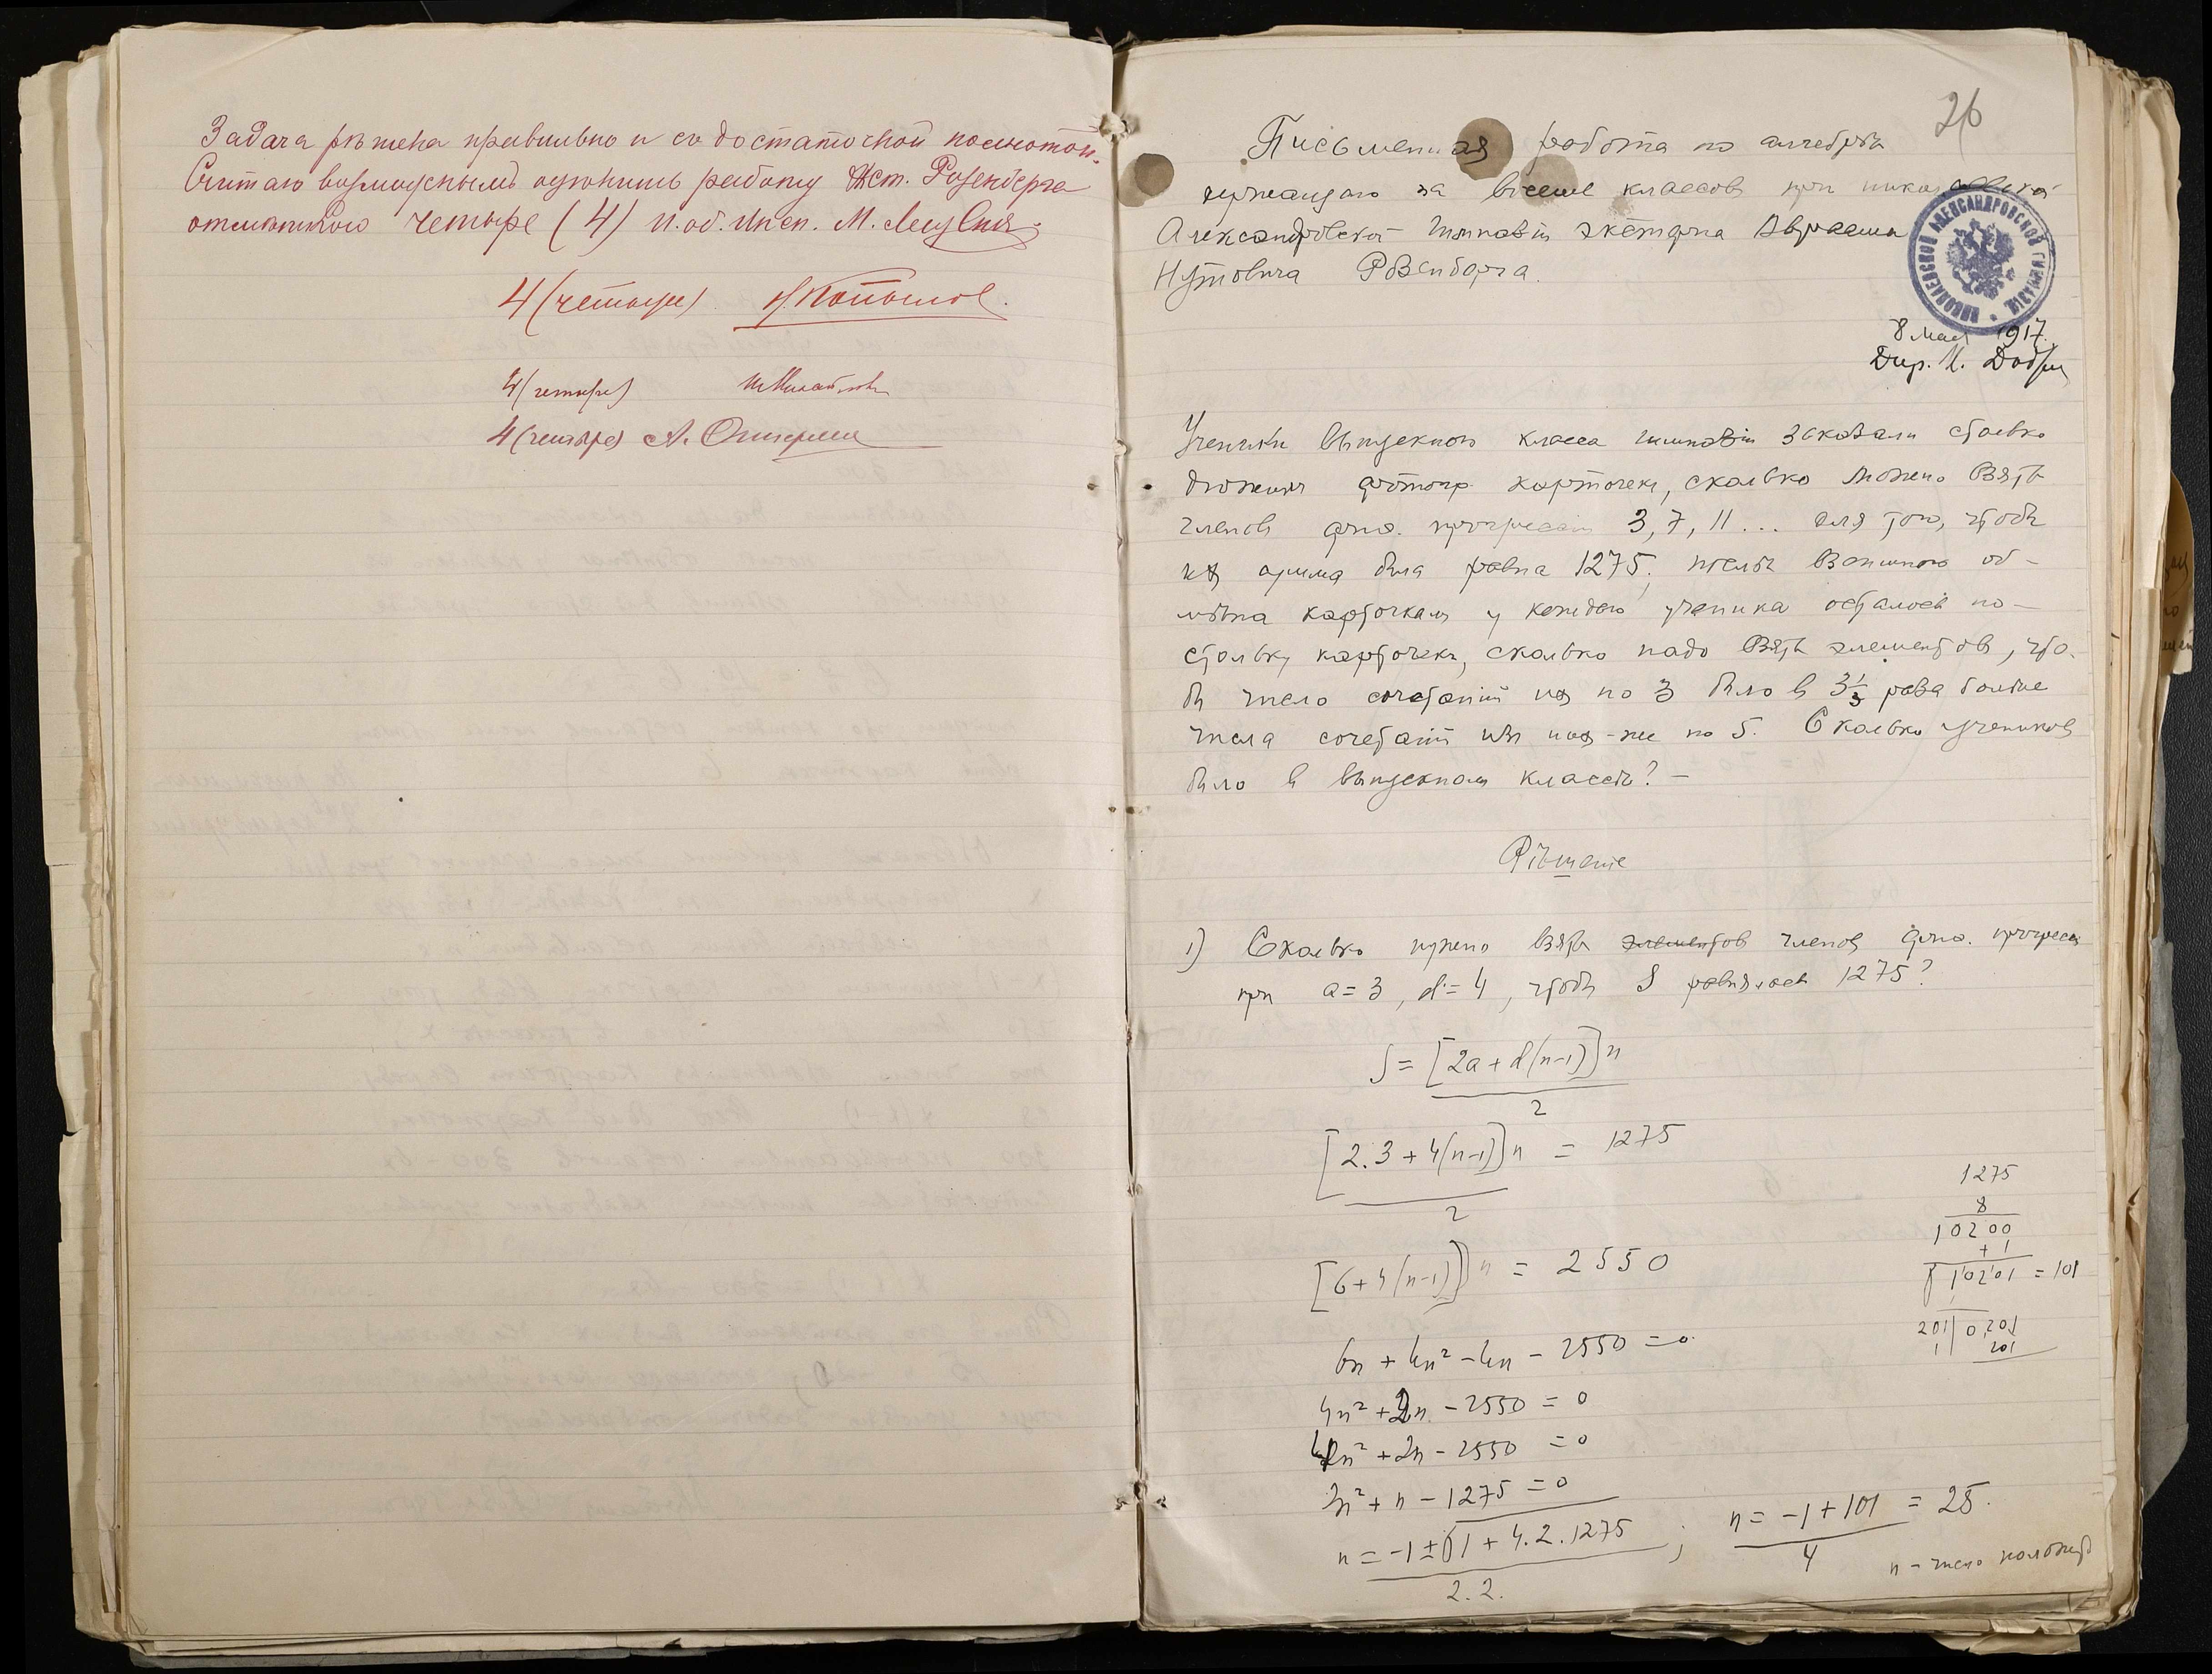 Задача рѣшена правильно и съ достаточной полнотой.
Считаю возможнымъ оцѣнить работу Экст. Розенберга
отмѣткою четыре (4) И. об. Инсп. М.
4 (четыре)
4 (четыре)
4 (четыре) А.
26
Письменная работа по алгебрѣ
за восемь классовъ при Николаевской
Александровской Гимназіи экстерна Авраама
Нутовича Розенберга.
НИКОЛАЕВСКОЙ АЛЕКСАНДРОВСКОЙ ГИМНАЗІИ
8 мая 1917.
Дир. И.
Ученики выпускного класса гимназіи заказали столько
дюжинъ фотогр. карточекъ, сколько можно взять
членовъ прогрессіи 3, 7, 11... для того, чтобы
ихъ сумма была равна 1275; послѣ взаимнаго об-
мѣна карточками у каждаго ученика осталось по-
стольку карточекъ, сколько надо взять элементовъ, что-
бы число сочетаній изъ нихъ по 3 было в 3 1/3 раза больше
числа сочетаній изъ нихъ-же по 5. Сколько учениковъ
было в выпускномъ классѣ? —
Рѣшеніе
1) Сколько нужно взять элементов членовъ прогрессіи
при a = 3, d = 4, чтобы S равнялось 1275?
S = [2a + d(n-1)]n
2
[2.3 + 4(n-1)]n = 1275
2
[6 + 4(n-1)]n = 2550
6n + 4n² - 4n - 2550 = 0
4n² + 2n - 2550 = 0
4n² + 2n - 2550 = 0
2n² + n - 1275 = 0
n = -1 ± √1 + 4.2.1275 ; n = -1 + 101 = 25.
2.2. 4
n - число
1275
8
10200
+ 1
√10201 = 101
201 | 0,201
1 | 201